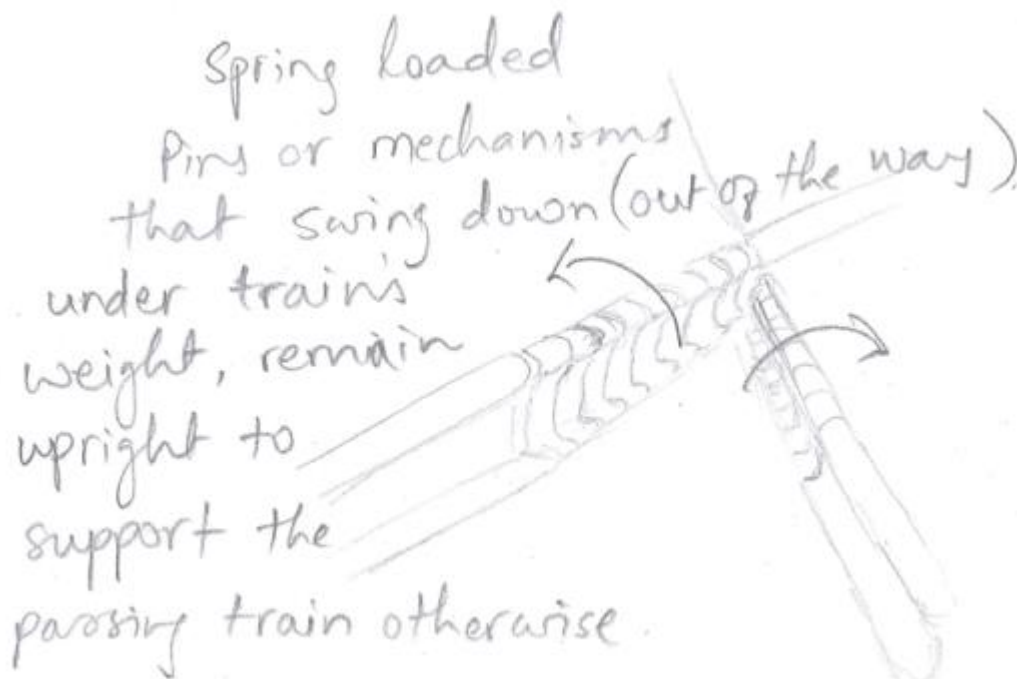 Spring loaded
Pins or mechanisms
that swing down (out of the way)
under train's
weight, remain
upright to
support the
passing train otherwise.